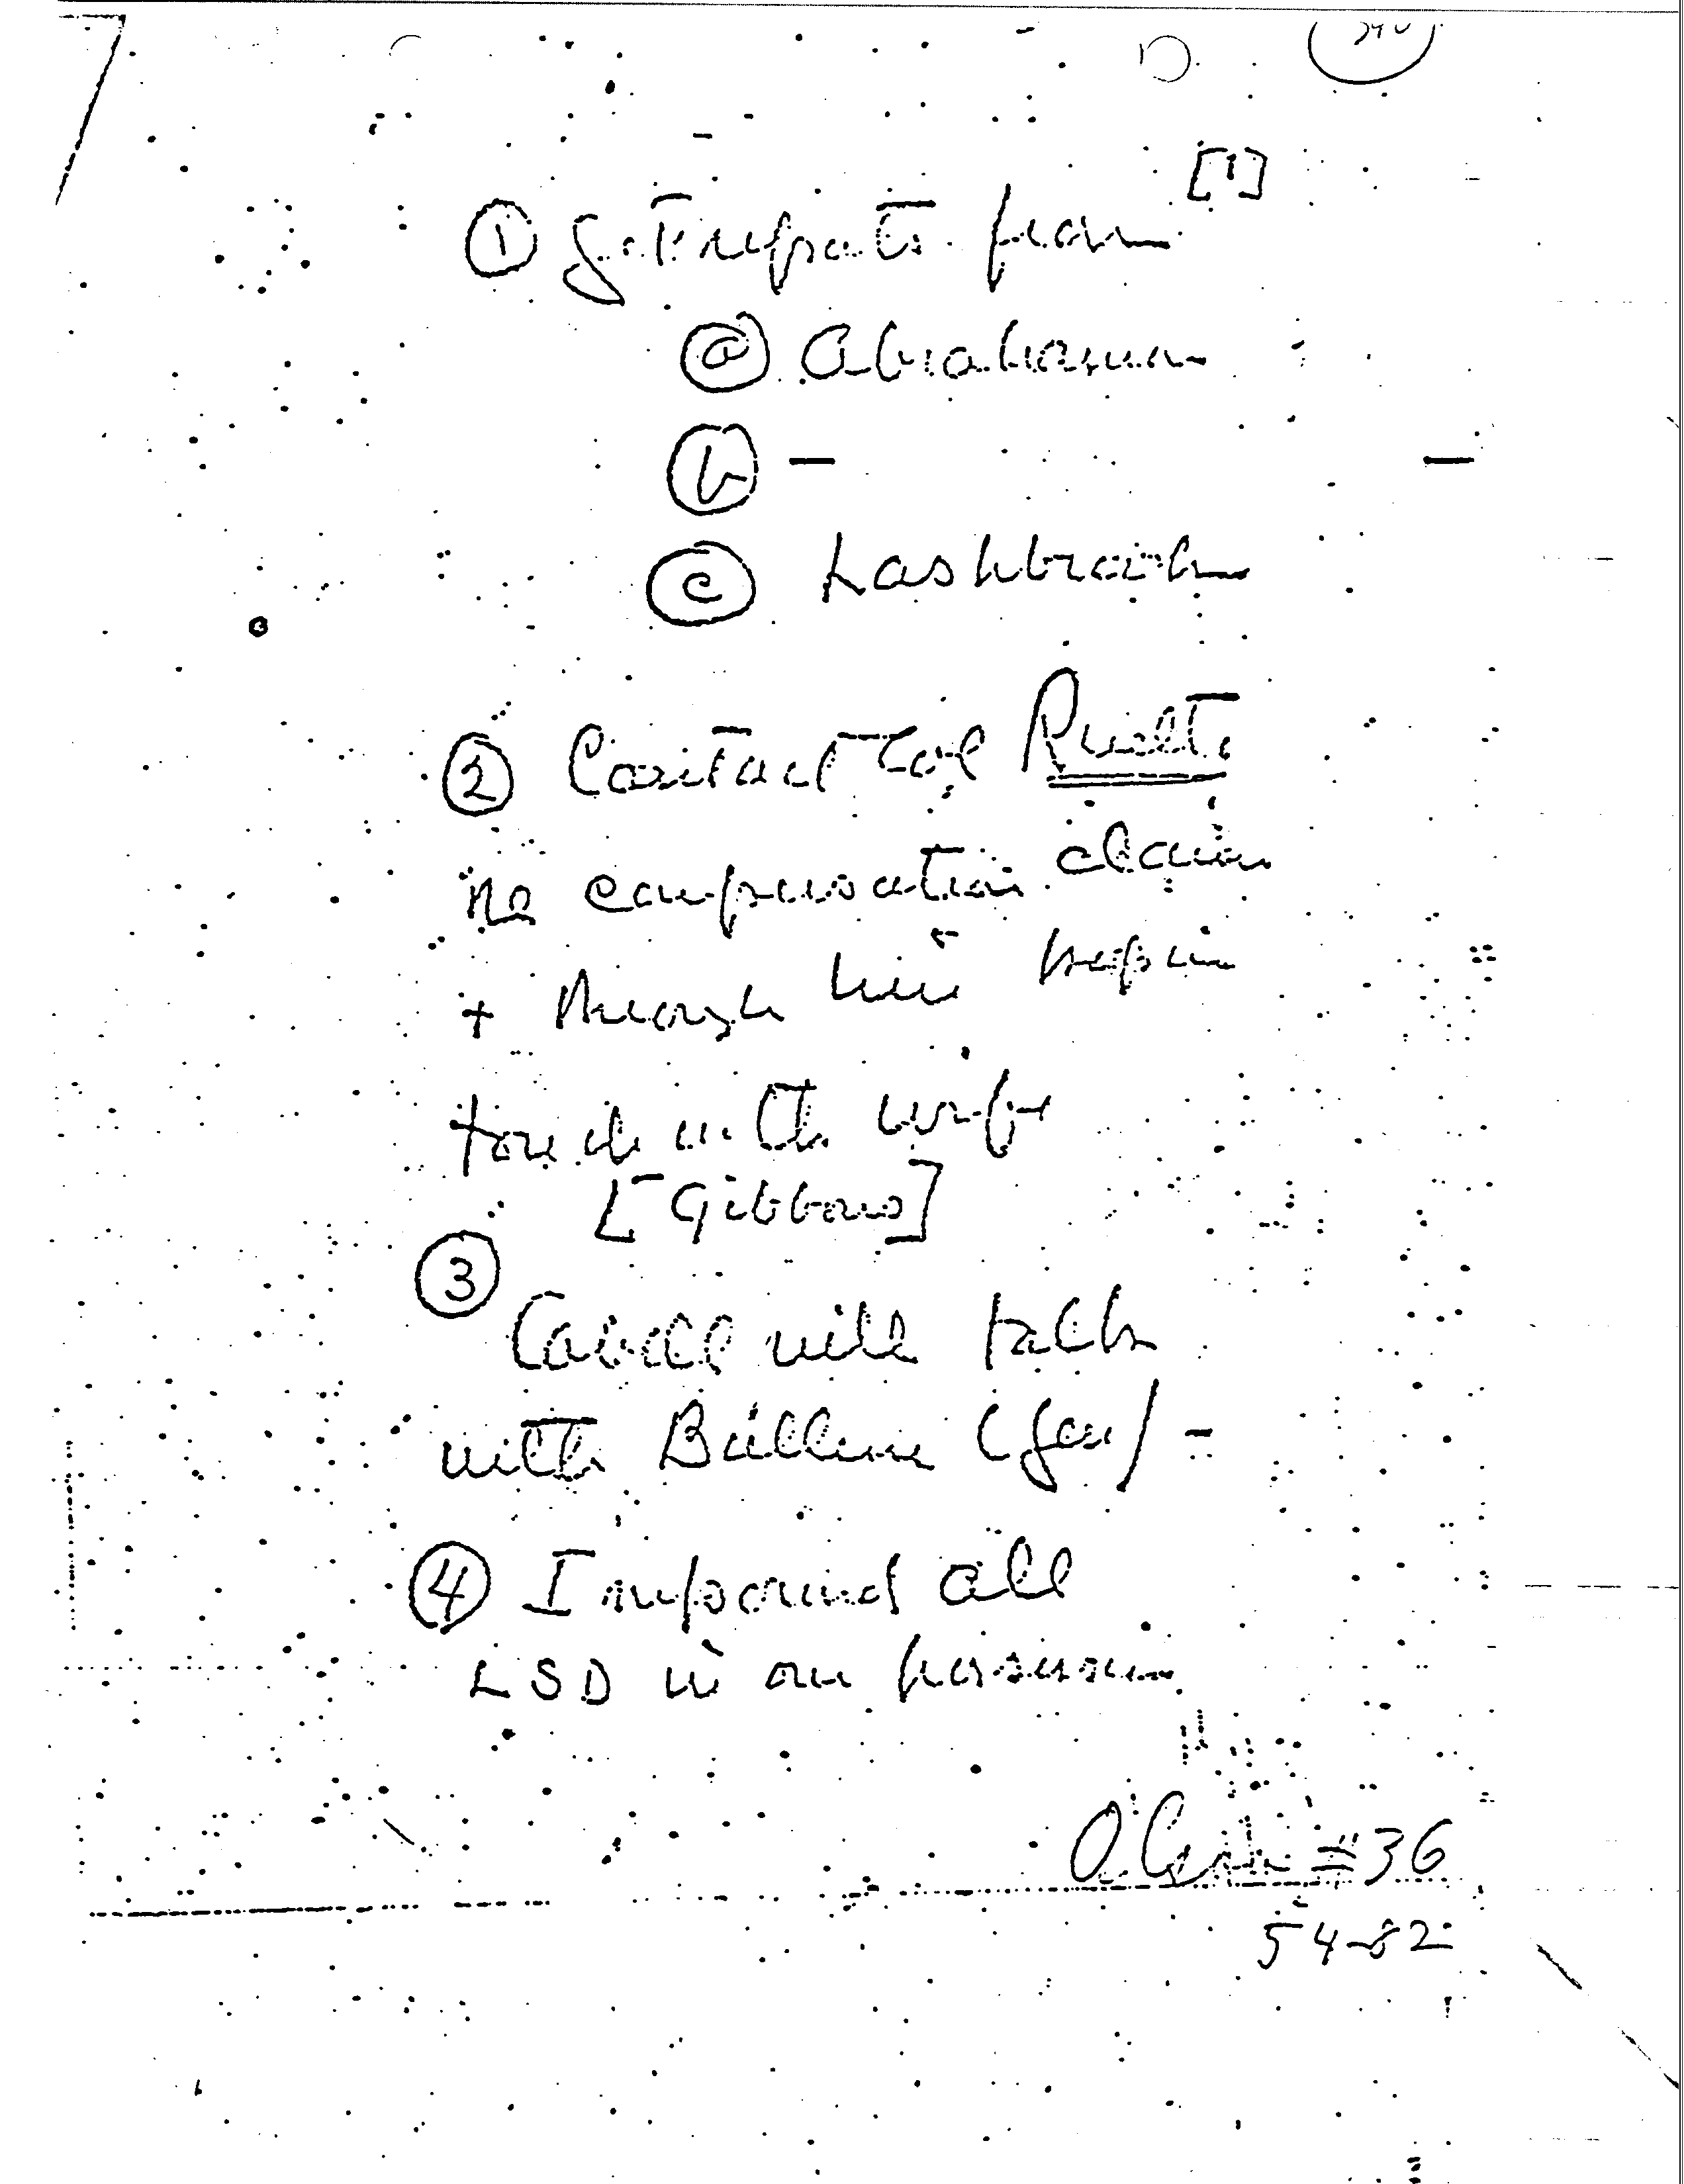 [1]
① Get reports from
ⓐ Abrahamson
ⓑ —
ⓒ Lashbrook
② Contact Col
no compensation claim
+ through him keep in
touch with wife
[Gibbons]
③
will talk
with (Gen) -
④ Impound all
LSD in our possession
#36
54-82